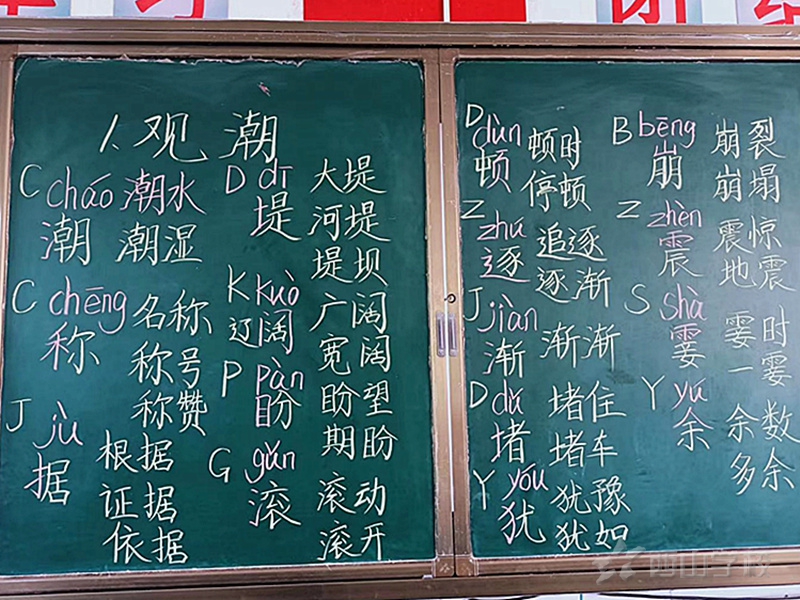 团结
1.观潮
C cháo 潮 潮水 潮湿
C chēng 称 名称 称号 称赞
J jù 据 根据 证据 依据
D dī 堤 大堤 河堤 堤坝
K kuò 辽阔 广阔 宽阔
P pàn 盼 盼望 期盼
G gǔn 滚 滚动 滚开
D dùn 顿 顿时 停顿
Z zhú 逐 追逐 逐渐
J jiàn 渐 渐渐
D dǔ 堵 堵住 堵车
Y yóu 犹 犹豫 犹如
B bēng 崩 崩裂 崩塌
Z zhèn 震 震惊 地震
S Shà 霎 霎时 一霎
Y yú 余 余数 多余